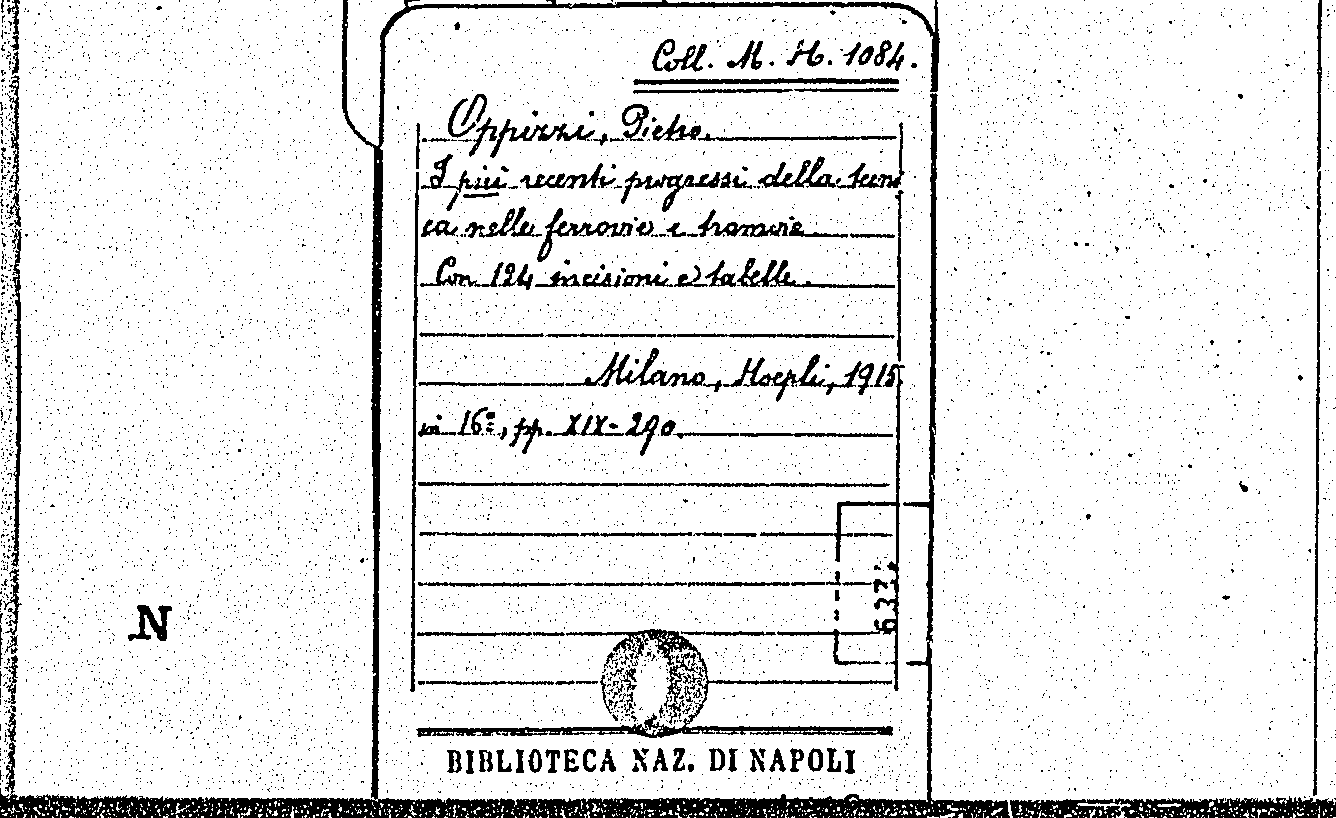 Coll. M. H. 1084.
Oppizzi, Pietro.
I più recenti progressi della tecni
ca nelle ferrovie e tramvie.
Con 124 incisioni e tabelle.
Milano, Hoepli, 1915
in 16º, pp. XIX-290.
N
BIBLIOTECA NAZ. DI NAPOLI